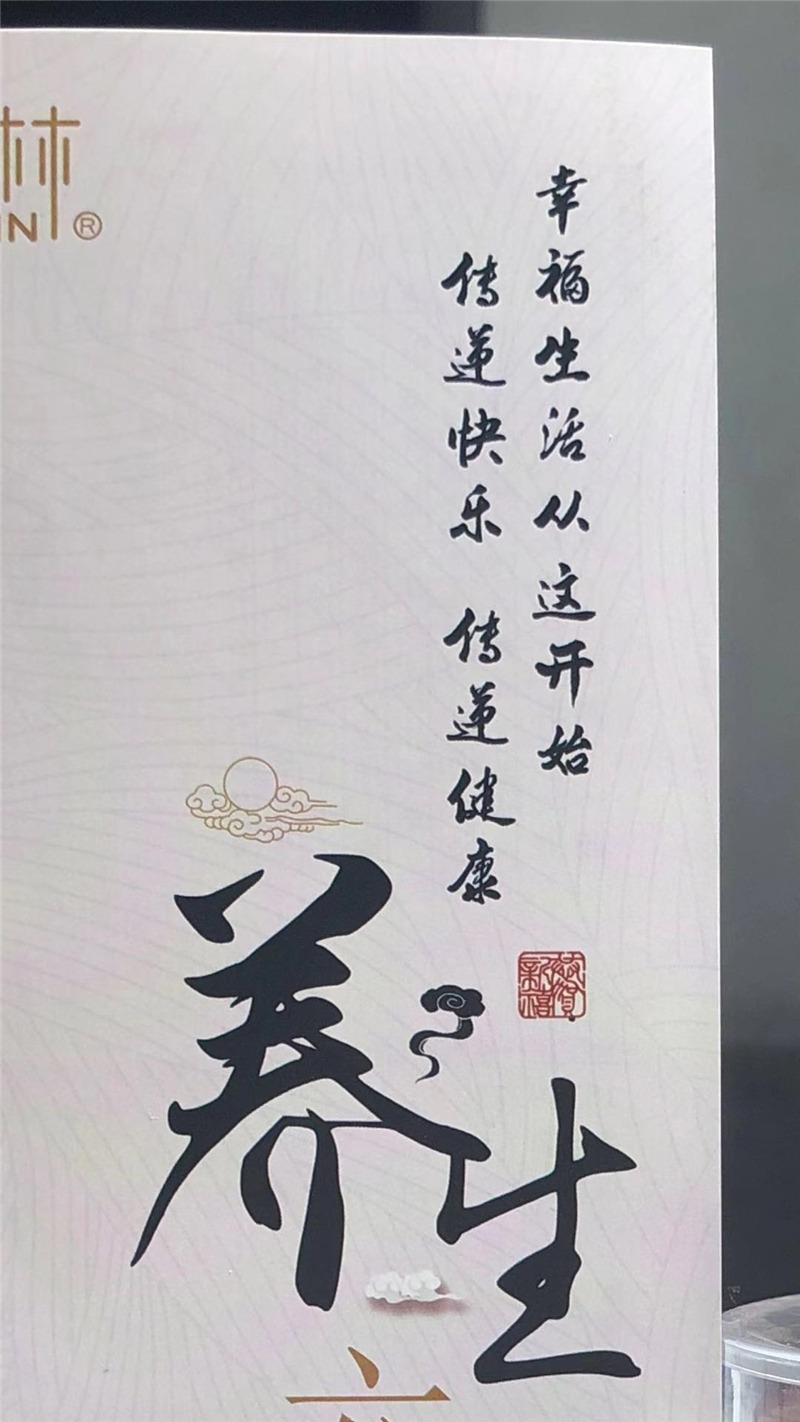 林
IN®
幸福生活从这开始
传递快乐 传递健康
恭贺新禧
养生